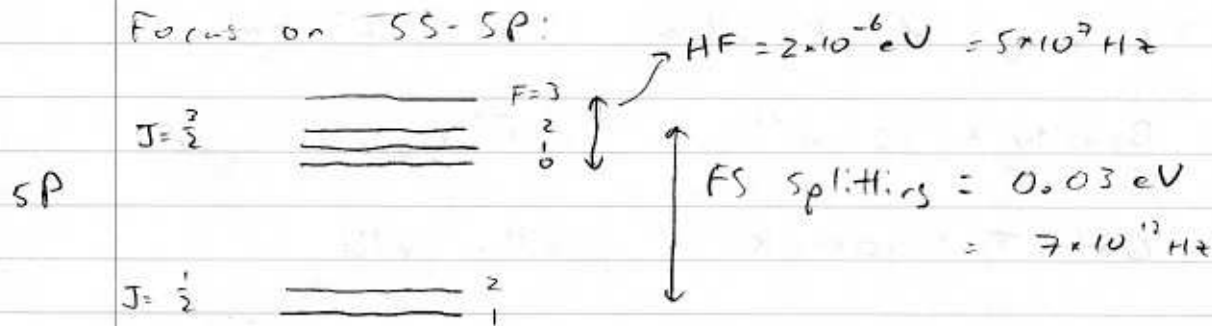 Focus on 5S-5P:
HF = 2×10⁻⁶ eV = 5×10⁷ Hz
F=3
J=3/2
2
1
0
5P
FS splitting = 0.03 eV
= 7×10¹² Hz
J=1/2
2
1